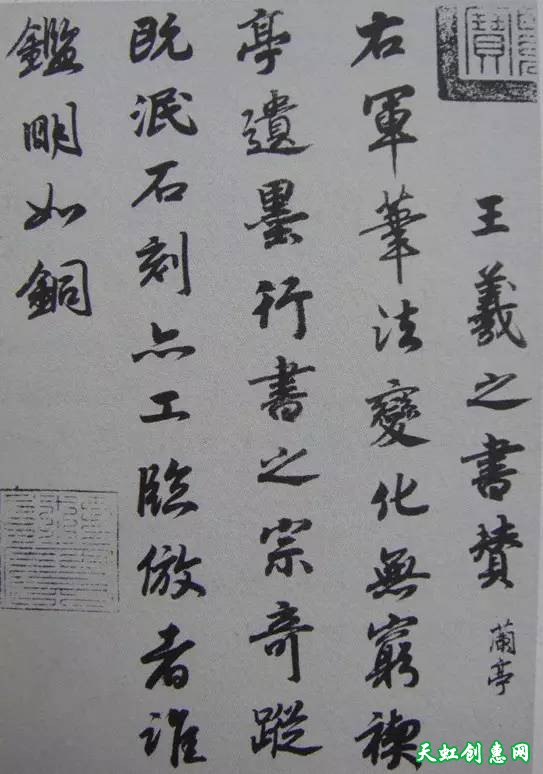 王羲之書賛 蘭亭
右軍筆法變化無窮禊
亭遺墨行書之宗奇蹤
既泯石刻亦工臨倣者誰
鑑明如銅
寶
天虹创惠网